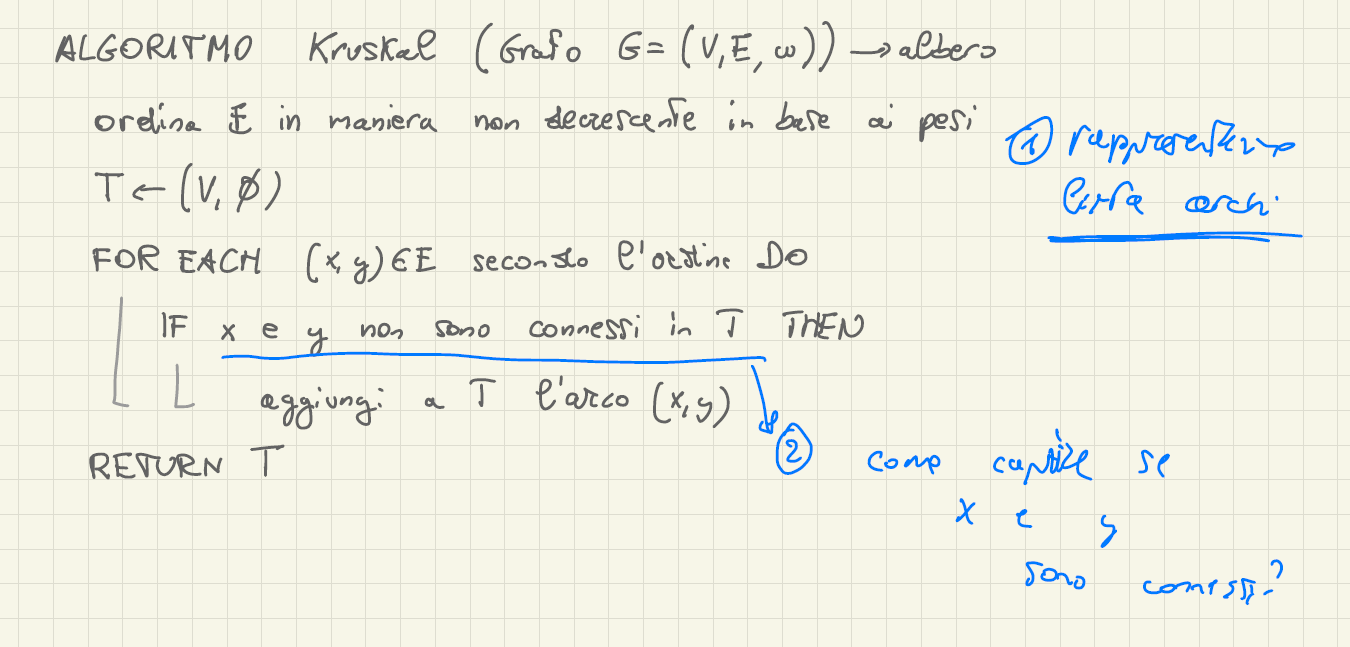 ALGORITMO Kruskal (Grafo G=(V,E,ω)) → albero
ordina E in maniera non decrescente in base ai pesi
T ← (V, ∅)
FOR EACH (x,y)∈E secondo l'ordine DO
IF x e y non sono connessi in T THEN
aggiungi a T l'arco (x,y)
RETURN T
① 
lista archi
② come capire se
x e y
sono connessi?